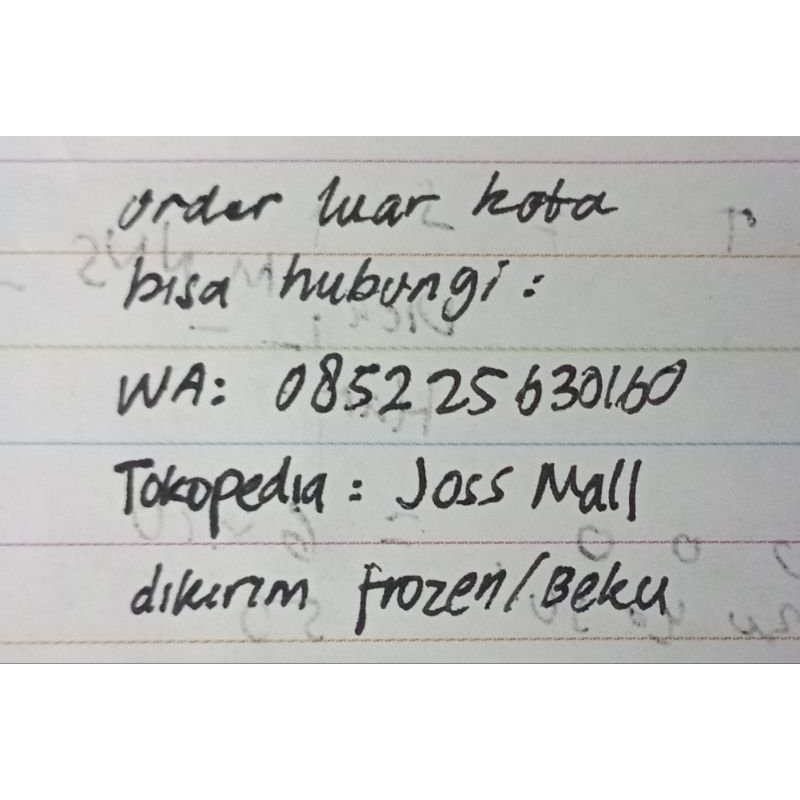 order luar kota
bisa hubungi :
WA: 085225630160
Tokopedia : Joss Mall
dikirim frozen/Beku